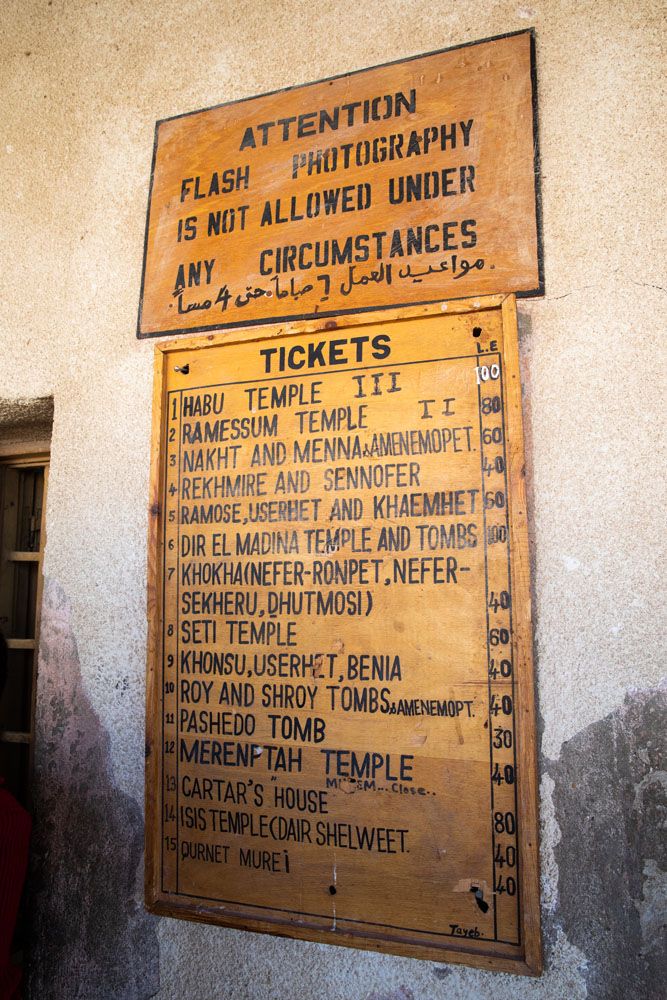 ATTENTION
FLASH PHOTOGRAPHY
IS NOT ALLOWED UNDER
ANY CIRCUMSTANCES
مواعيد العمل ٦ صباحاً حتى 4 مساً.
TICKETS L.E
1 HABU TEMPLE III 100
2 RAMESSUM TEMPLE II 80
3 NAKHT AND MENNA,&AMENEMOPET. 60
4 REKHMIRE AND SENNOFER 40
5 RAMOSE,USERHET AND KHAEMHET 60
6 DIR EL MADINA TEMPLE AND TOMBS 100
7 KHOKHA(NEFER-RONPET,NEFER-
SEKHERU,DHUTMOSI) 40
8 SETI TEMPLE 60
9 KHONSU,USERHET,BENIA 40
10 ROY AND SHROY TOMBS,&AMENEMOPT. 40
11 PASHEDO TOMB 30
12 MERENPTAH TEMPLE 40
Close..
13 CARTAR'S "HOUSE 80
14 ISIS TEMPLE(DAIR SHELWEET. 40
15 QURNET MUREI 40
Tayeb.